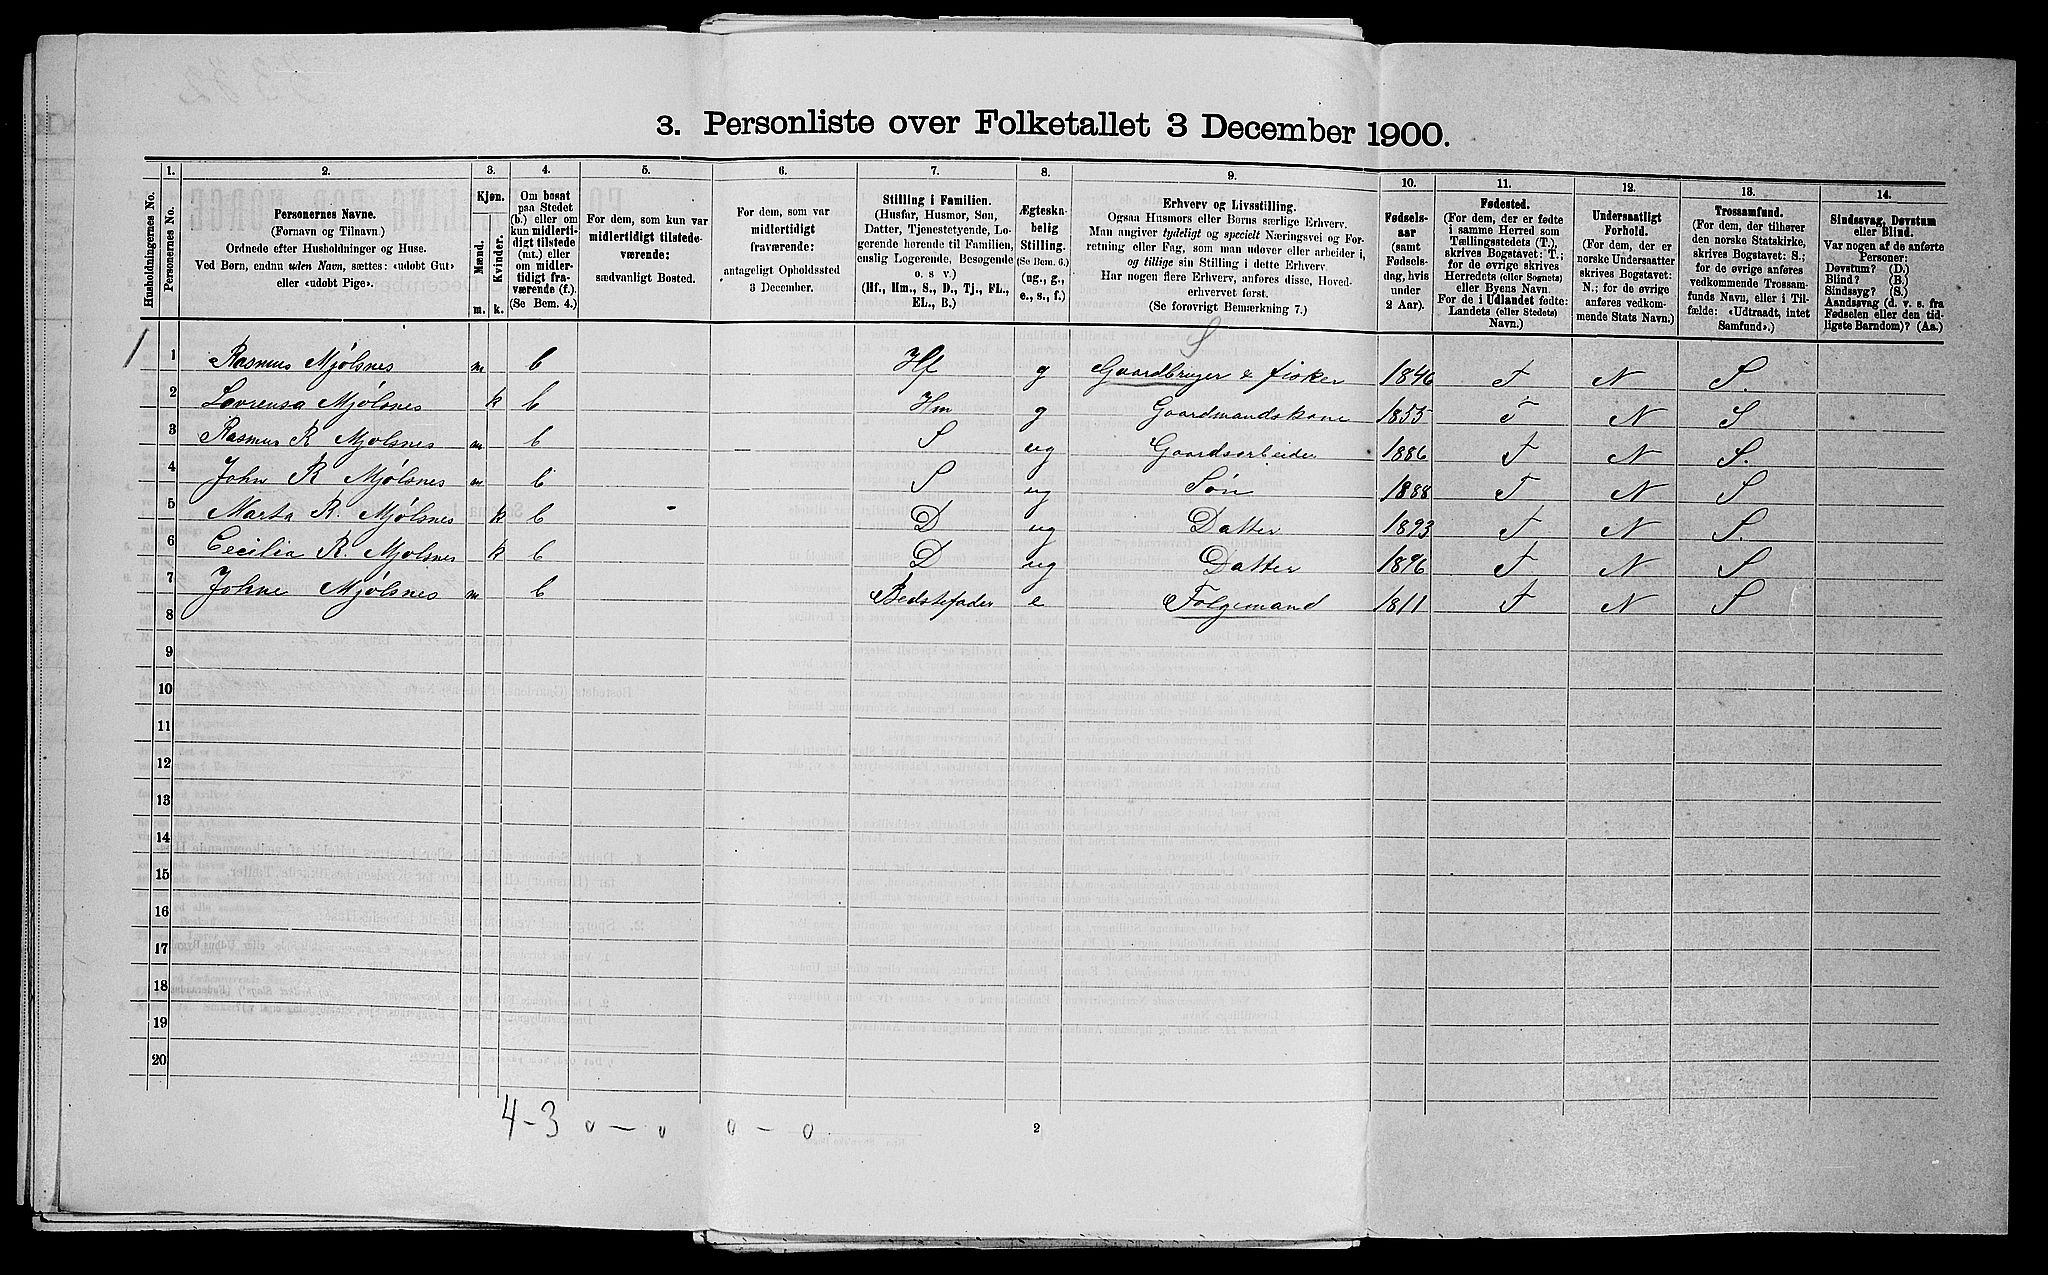 3. Personliste over Folketallet 3 December 1900.
Husholdningernes No.
1.
Personernes No.
2.
Personernes Navne.
(Fornavn og Tilnavn.)
Ordnede efter Husholdninger og Huse.
Ved Børn, endnu uden Navn, sættes: «udøbt Gut»
eller «udøbt Pige».
3.
Kjøn.
Mænd.
Kvinder.
m. k.
4.
Om bosat
paa Stedet
(b.) eller om
kun midlerti-
digt tilstede
(mt.) eller
om midler-
tidigt fra-
værende (f.).
(Se Bem. 4.)
5.
For dem, som kun var
midlertidigt tilstede-
værende:
sædvanligt Bosted.
6.
For dem, som var
midlertidigt
fraværende:
antageligt Opholdssted
3 December.
7.
Stilling i Familien.
(Husfar, Husmor, Søn,
Datter, Tjenestetyende, Lo-
gerende hørende til Familien,
enslig Logerende, Besøgende
o. s v.)
(Hf., Hm., S., D., Tj., FL.,
EL., B.)
8.
Ægteska-
belig
Stilling.
(Se Bem. 6.)
(ug., g.,
e., s., f.)
9.
Erhverv og Livsstilling.
Ogsaa Husmors eller Børns særlige Erhverv.
Man angiver tydeligt og specielt Næringsvei og For-
retning eller Fag, som man udøver eller arbeider i,
og tillige sin Stilling i dette Erhverv.
Har nogen flere Erhverv, anføres disse, Hoved-
erhvervet først.
(Se forøvrigt Bemærkning 7.)
10.
Fødsels-
aar
(samt
Fødsels-
dag, hvis
under
2 Aar).
11.
Fødested.
(For dem, der er fødte
i samme Herred som
Tællingsstedets (T.),
skrives Bogstavet: T.;
for de øvrige skrives
Herredets (eller Sognets)
eller Byens Navn.
For de i Udlandet fødte:
Landets (eller Stedets)
Navn.)
12.
Undersaatligt
Forhold.
(For dem, der er
norske Undersaatter
skrives Bogstavet:
N.; for de øvrige
anføres vedkom-
mende Stats Navn.)
13.
Trossamfund.
(For dem, der tilhører
den norske Statskirke,
skrives Bogstavet: S.;
for de øvrige anføres
vedkommende Trossam-
funds Navn, eller i Til-
fælde: «Udtraadt, intet
Samfund».)
14.
Sindssvag, Døvstum
eller Blind.
Var nogen af de anførte
Personer:
Døvstum? (D.)
Blind? (B.)
Sindssyg? (S.)
Aandssvag (d. v. s. fra
Fødselen eller den tid-
ligste Barndom)? (Aa.)
S
1 1 Rasmus Mjølsnes m b Hf g Gaardbruger & fisker 1846 T N S.
2 Lovrensa Mjølsnes k b Hm g Gaardmandskone 1855 T N S
3 Rasmus R Mjølsnes m b S ug Gaardsarbeider 1886 T N S.
4 John R Mjølsnes m b S ug Søn 1888 T N S
5 Marta R. Mjølsnes k b - D ug Datter 1893 T N S.
6 Cecilia R. Mjølsnes k b D ug Datter 1896 T N S
7 Johne Mjølsnes m b Bedstefader e Folgemand 1811 T N S
8
9
10
11
12
13
14
15
16
17
18
19
20
4-3 0-0 0-0
2